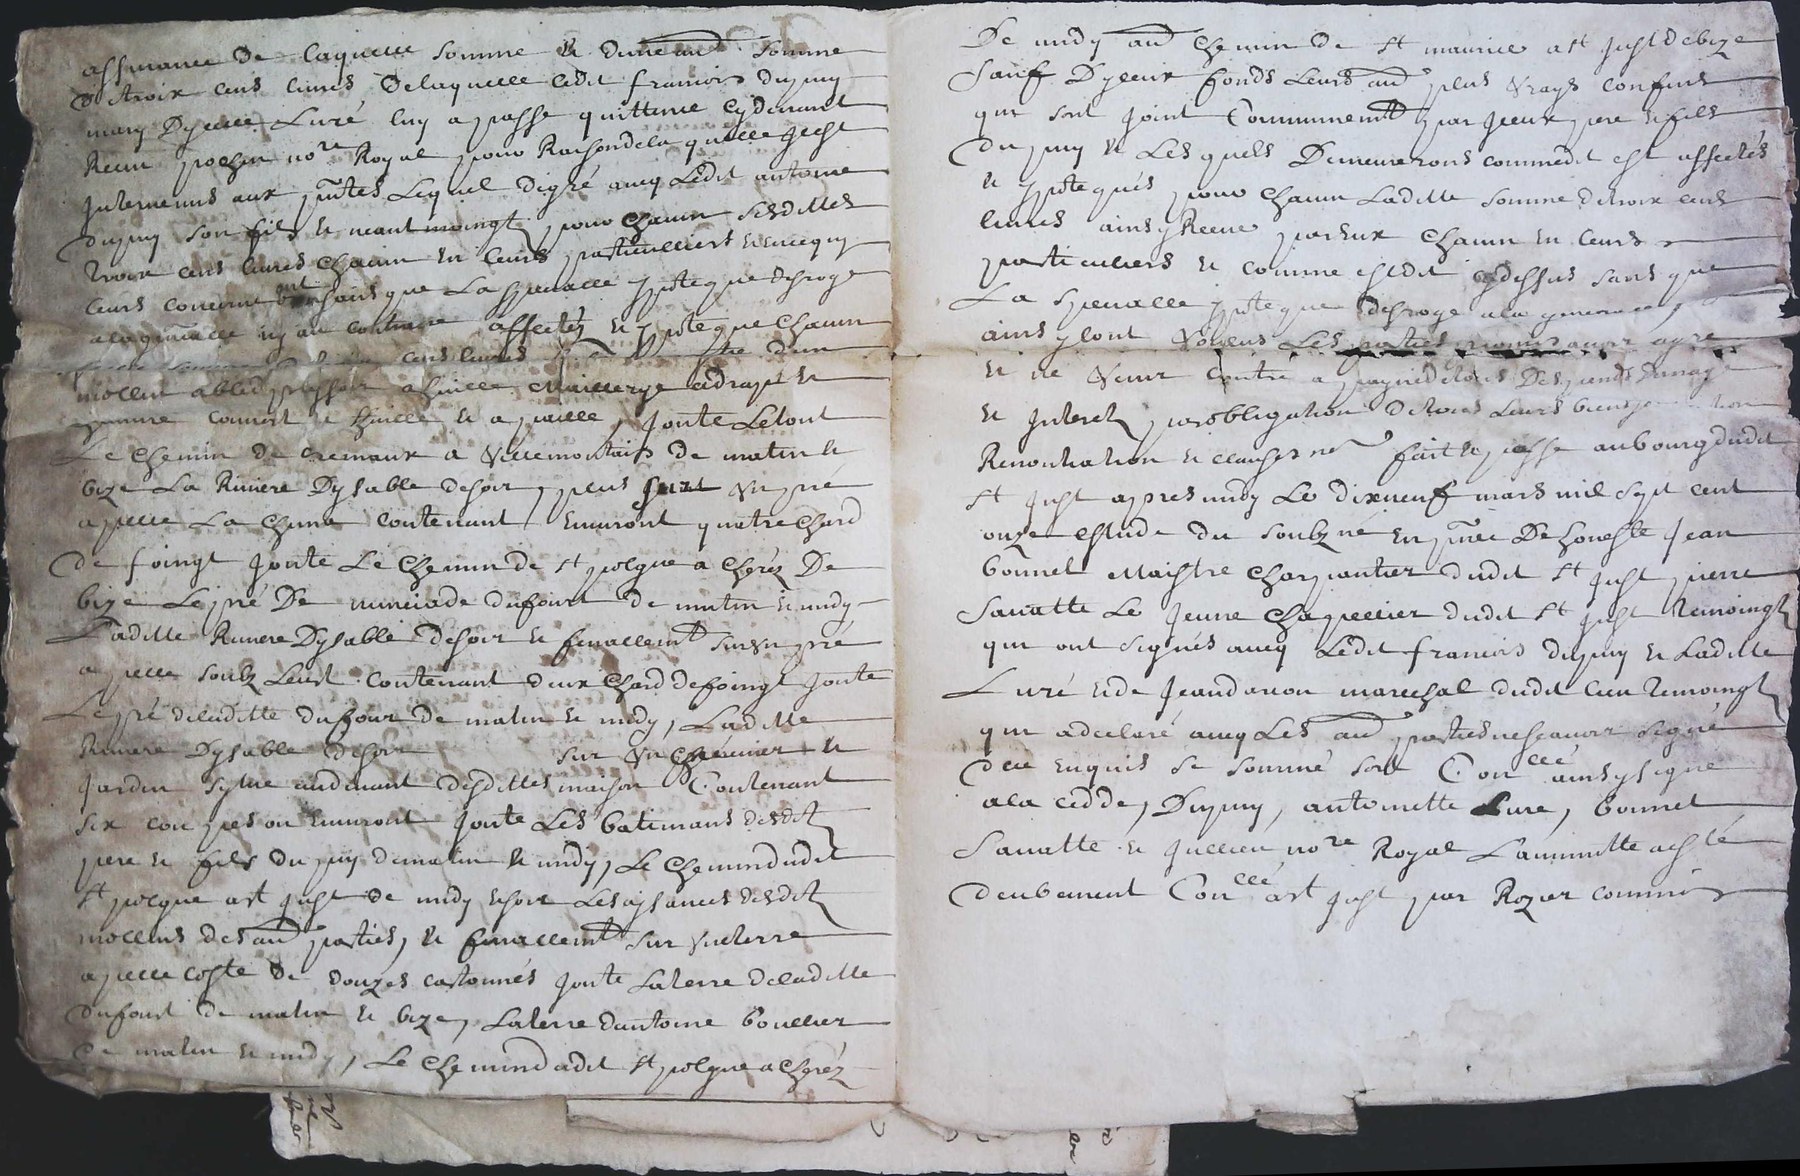 assurance de laquelle somme et d'une aud. somme
de troix cens livres delaquelle ledit francois dupuy
mary dycelle Luré luy a passe quittence cydevant
Receu pochin no.re Royal pour Raisondela quelle jl est
jntervenus aux pntes Lequel digré avecq Ledit antoine
dupuy son fils et neant moingt pour chacun sesdittes
troix cens livres chacun en leurs particulliers et en ce quy
leurs concerne sans que La specialle ypoteque desroge
a la gnralle ny au contraire affectéz et ypoteque chacun
cens livres
mollin a bled pressoir a huille Maillerye a drapt et
couvert a thuille et a paille, joute Letout
Le chemin de cremaux a Villemontais de matin et
bize La Riviere Dysable de soir, plus sur Un pré
apelle La chana contenant Environt quatre chard
de foingt joute Le chemin de st polgue a cheréz De
bize Le pré De dufourt de matin et midy
Laditte Riviere Dysable de soir et finallemt sur Un pré
apelle soubz Leurt contenant deux chard de foingt joute
Le pré deladitte dufour de matin et midy, Laditte
Riviere Dysable de soir sur Un chenevier et
jardin sytue audevant desdittes maison Contenant
six coupes ou Environt joute Les batimans desdit
pere et fils dupuy de matin et midy, Le chemin dudit
st polgue a st just de midy et soir Les aysances desdit
mollins des aud parties, et finallemt sur Une terre
apelle coste de douzes cartonnés joute La terre deladitte
dufourt de matin et bize, La terre d'antoine boullier
de matin et midy, Le chemin dudit st polgue a cheréz
De midy aud chemin de st maurice a st just de bize
sauf Dyceux fonds Leurs aud plus Vrays confins
qui sont joint Communnemt par jceux pere et fils
dupuy et Lesquels Demeureronts comme dit est affectés
et ypotequés pour chacun Laditte somme de troix cens
livres ainsy Receue par Eux chacun en leurs
particulliers et comme est dit cydessus sans que
La specialle ypoteque desroge a la generalle,
ainsy lont Voulus Les parties promis avoir agre
et ne Venir Contre a payne de tous Despends dmage
et jnterets par obligation de tous Leurs biens
Renontiation et clauses ne fait et passe au bourg dudit
st just apres midy Le dixneuf mars mil sept cent
onze estude du soubz ne en pnce De honeste jean
bonnet Maistre charpantier dudit st just pierre
Sauatte Le jeune chapellier dudit st just temoingt
qui ont signés avecq Ledit francois dupuy et Laditte
Luré et de jean marechal dudit lieu temoingt
qui a declaré avecq Les aud parties ne scavoir signé
de ce enquis et sommé soit Con.llé ainsy signé
a la cedde, Dupuy, antoinette Lure, bonnet
Sauatte et jullien no.re Royal La minutte a esté
deubement Con.llé a st just par Rozier commis